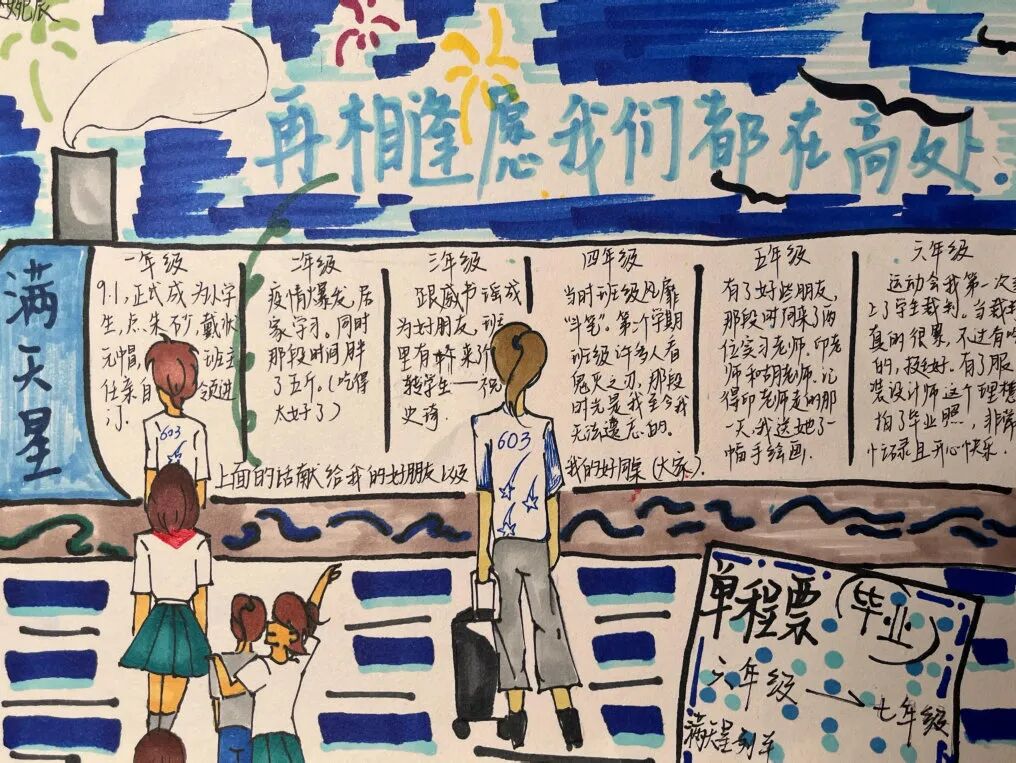 再相逢愿我们都在高处.
满天星
一年级
9.1,正式成为小学
生,点朱砂,戴状
元帽,班主
任亲自领进
门.
二年级
疫情爆发,居
家学习。同时
那段时间胖
了五斤。(吃得
太好了)
三年级
跟戚书谣成
为好朋友,班
里有新来个
转学生——祝
史琦.
四年级
当时班级风靡
“斗笔”。第二个学期
班级许多人看
鬼灭之刃,那段
时光是我至今我
无法遗忘的.
五年级
有了好些朋友,
那段时间来了两
位实习老师.印老
师和胡老师.记
得印老师走的那
一天,我送她了一
幅手绘画.
六年级
运动会我第一次
上了学生裁判。当裁
真的很累,不过有
的,挺好.有了服
装设计师这个理想
拍了毕业照,非常
忙碌且开心快乐.
上面的话献给我的好朋友以及我的好同桌(大家).
603
603
单程票(毕业)
六年级→七年级
满天星列车